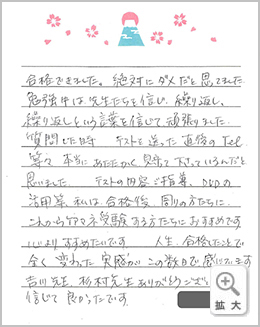 合格できました。絶対にダメだと思ってました
勉強中は先生たちを信じ、繰り返し、
繰り返しという言葉を信じて頑張りました。
質問した時 テストを送った直後のTel
等々 本当にあたたかく見守って下さっているんだと
思いました テストの内容、ご指導、DVDの
活用等、私は、合格後、周りの方たちに、
これからケアマネ受験する方たちにおすすめです
心よりすすめたいです 人生、合格したことで
全く変わった実感がこの数日で感じています
吉川先生、杉村先生ありがとうござい
信じて良かったです。
拡大